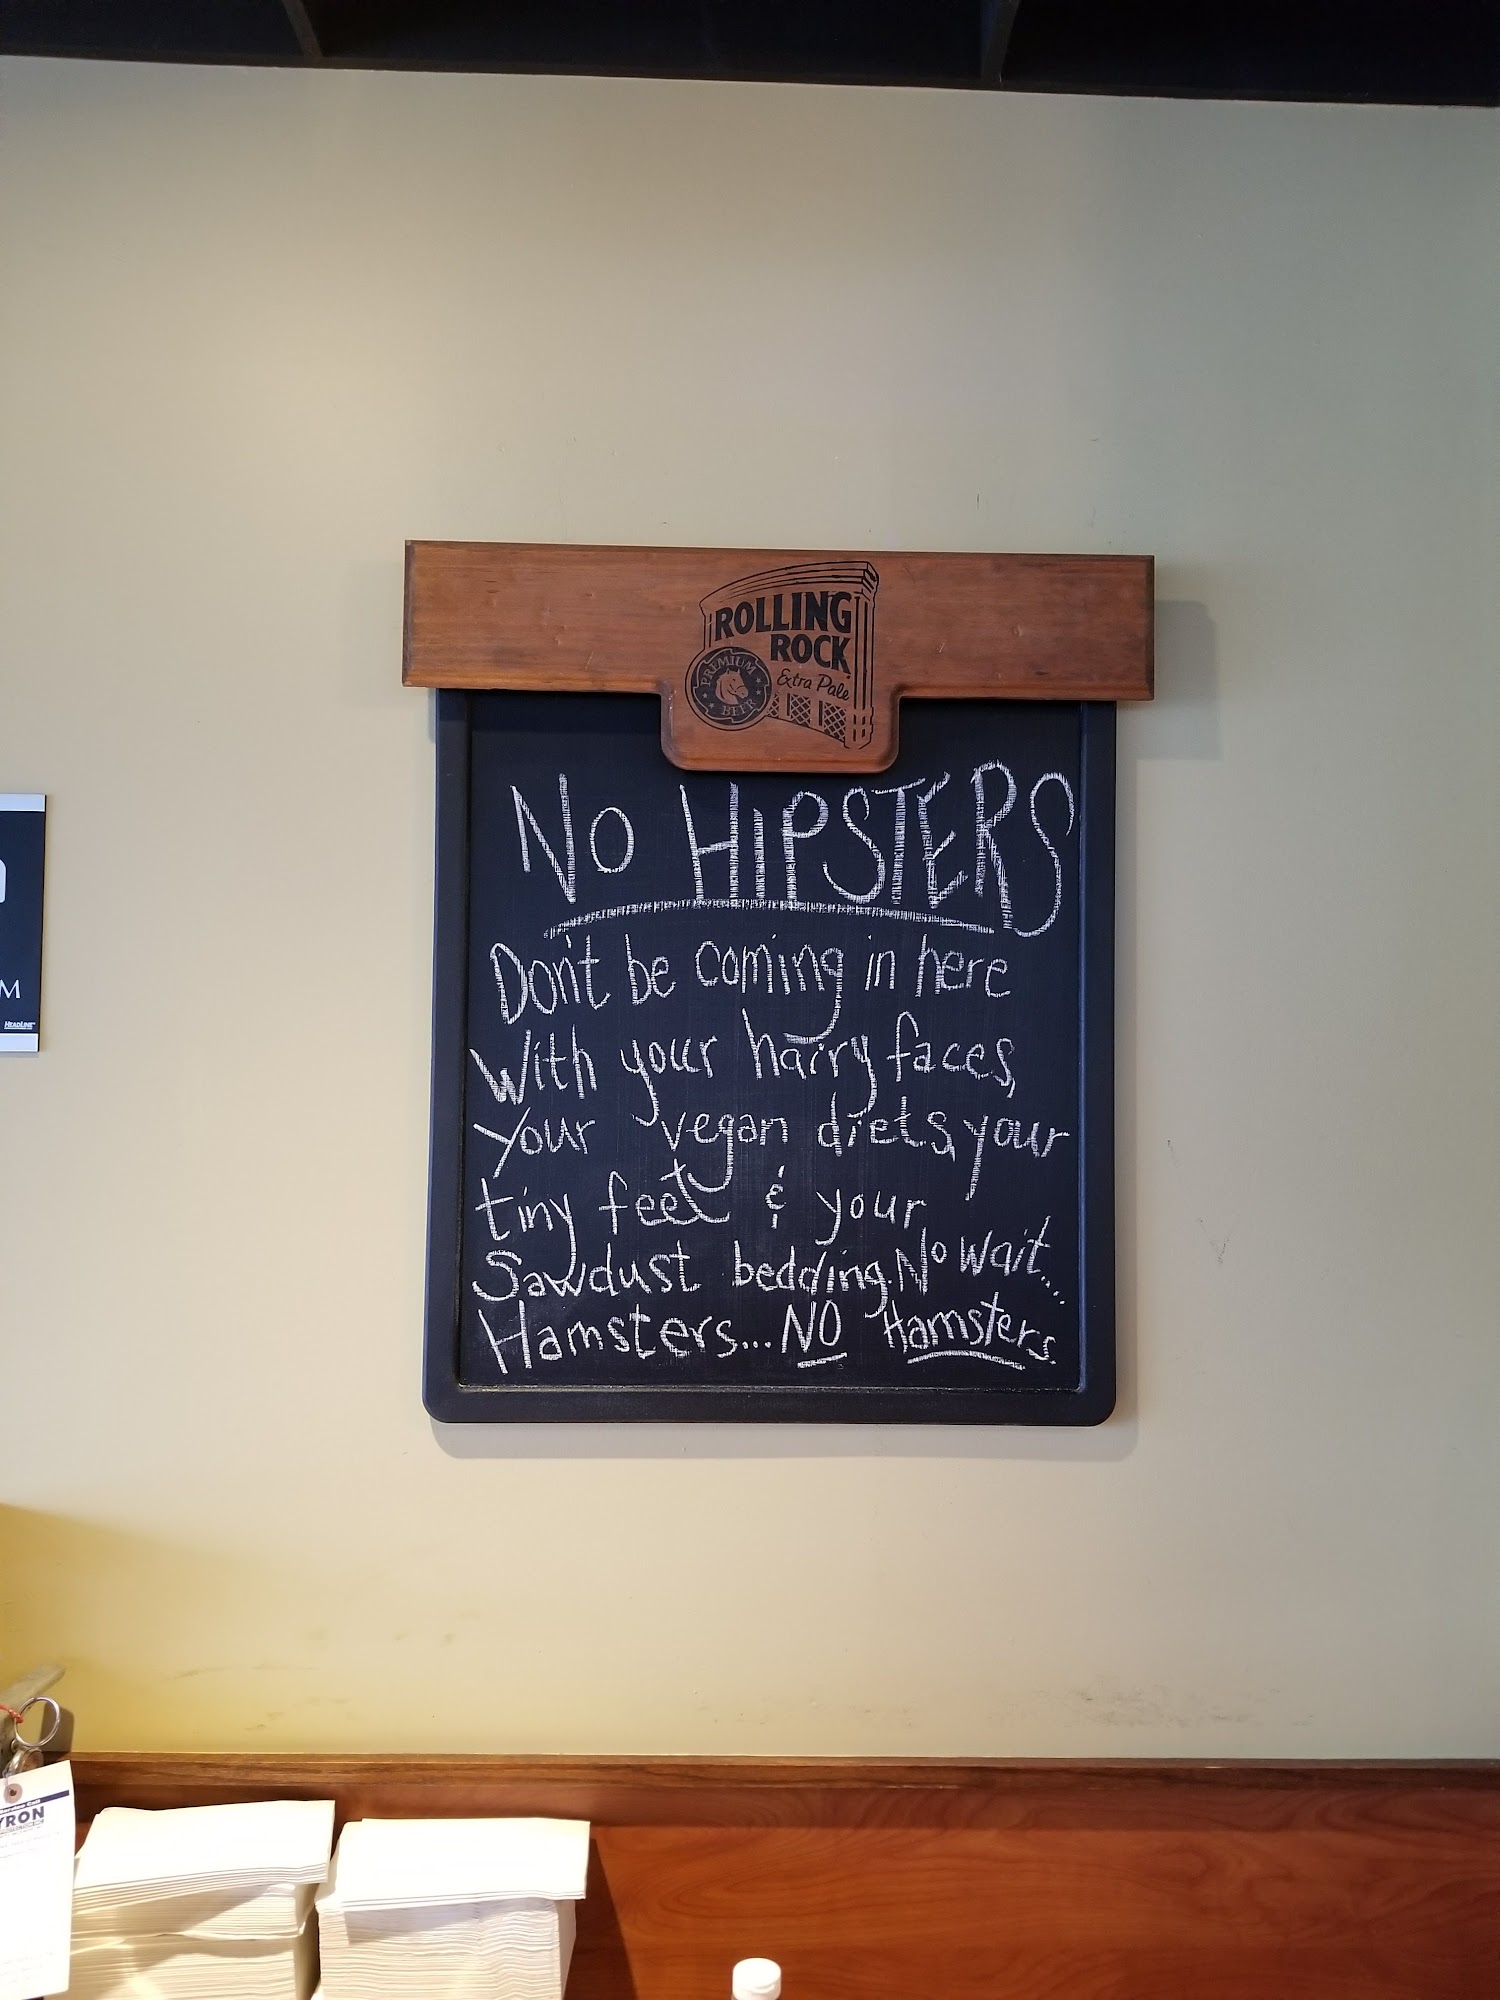 ROLLING
ROCK
Extra Pale
PREMIUM
BEER
No HiPSTERS
Don't be coming in here
With your hairy faces,
your vegan diets, your
tiny feet & your
Sawdust bedding. No wait....
Hamsters... NO Hamsters.
M
HEADLINE
YRON